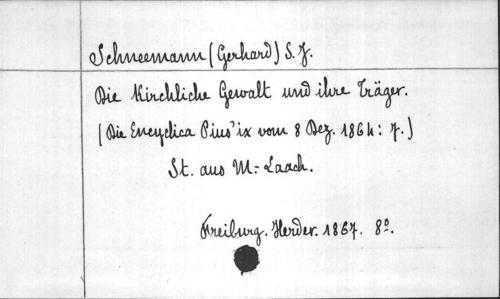 Schneemann (Gerhard) S. J.
Die Kirchliche Gewalt und ihre Träger.
(Die Encyclica Pius' ix vom 8 Dez. 1864: 7.)
St. aus M.-Laach.
Freiburg. Herder. 1867. 8º.